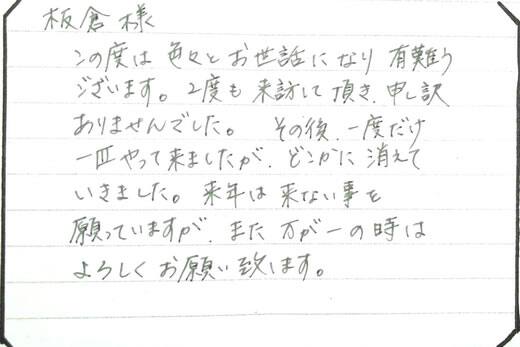 板倉様
この度は色々とお世話になり有難う
ございます。2度も来訪して頂き、申し訳
ありませんでした。その後、一度だけ
一匹やって来ましたが、どこかに消えて
いきました。来年は来ない事を
願っていますが、また万が一の時は
よろしくお願い致します。